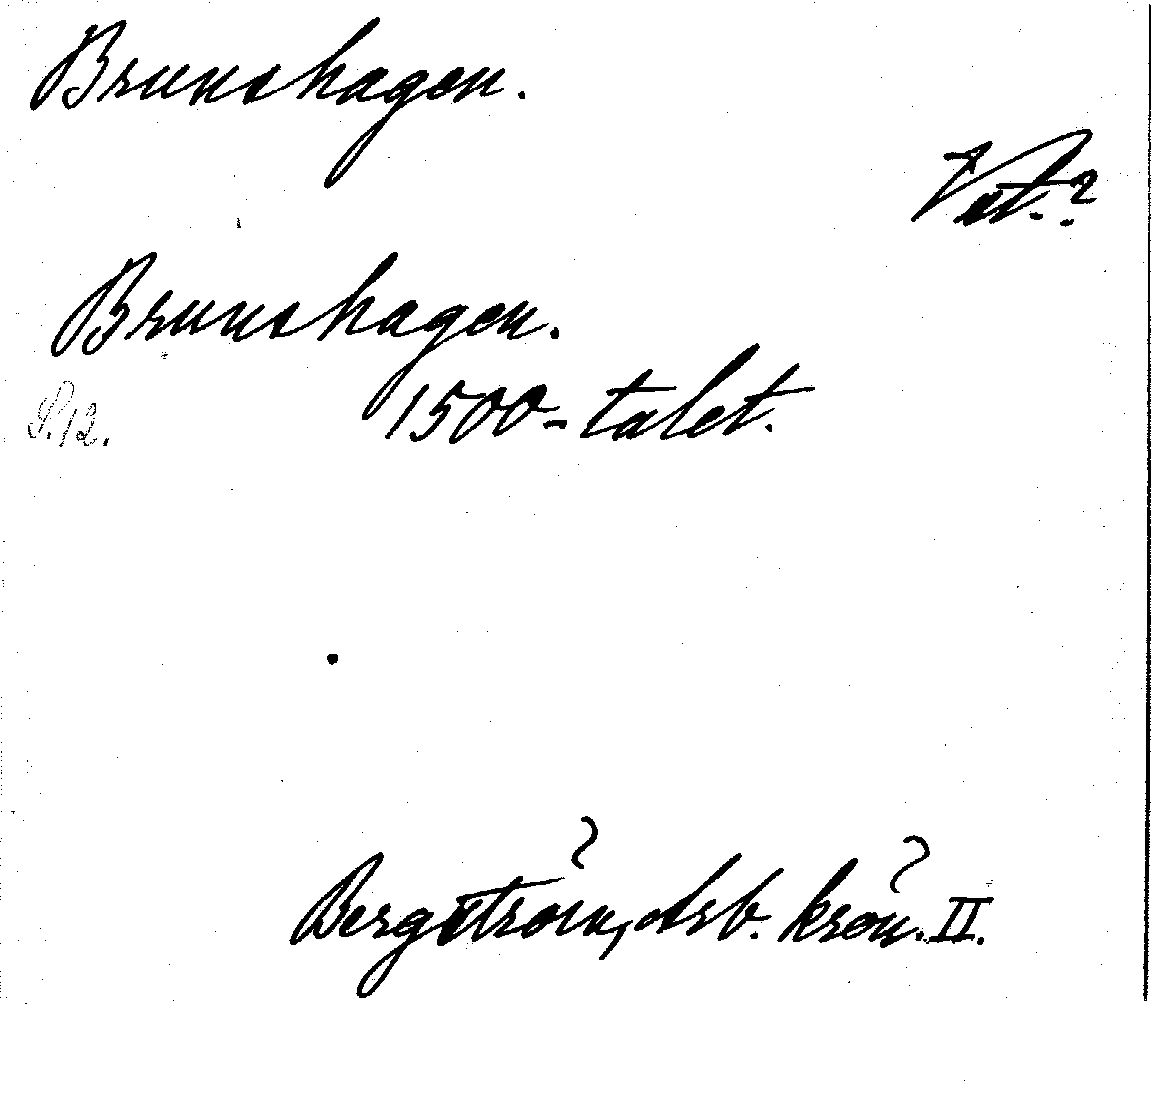 Brunshagen.
Vat.?
Brunshagen.
S. 12.
1500-talet.
Bergström, Arb. krön. II.